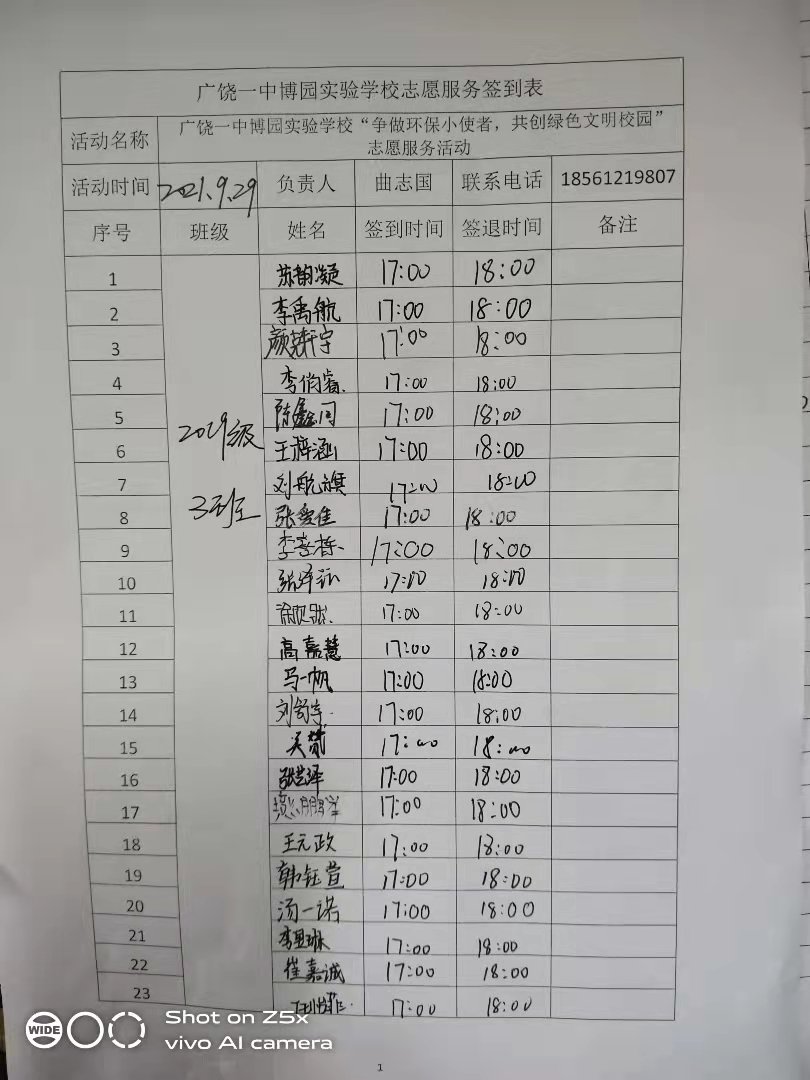 广饶一中博园实验学校志愿服务签到表
活动名称 广饶一中博园实验学校“争做环保小使者，共创绿色文明校园”
志愿服务活动
活动时间 2021.9.29 负责人 曲志国 联系电话 18561219807
序号 班级 姓名 签到时间 签退时间 备注
2019级
3班
1 苏韵凝 17:00 18:00
2 李禹航 17:00 18:00
3 颜 宇 17:00 18:00
4 李俏睿 17:00 18:00
5 陈鑫同 17:00 18:00
6 王梓涵 17:00 18:00
7 刘航旗 17:00 18:00
8 张 佳 17:00 18:00
9 李 栋 17:00 18:00
10 张泽 17:00 18:00
11 17:00 18:00
12 高嘉慧 17:00 18:00
13 马一帆 17:00 18:00
14 刘 17:00 18:00
15 吴梵 17:00 18:00
16 张艺泽 17:00 18:00
17 17:00 18:00
18 王元政 17:00 18:00
19 韩钰萱 17:00 18:00
20 汤一诺 17:00 18:00
21 李 琳 17:00 18:00
22 崔嘉诚 17:00 18:00
23 17:00 18:00
WIDE
Shot on Z5x
vivo AI camera
1